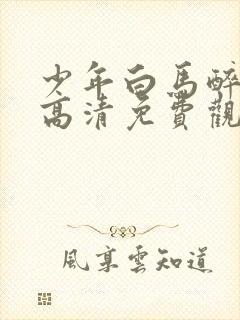 少年白馬醉
高清免費觀
風享雲知道